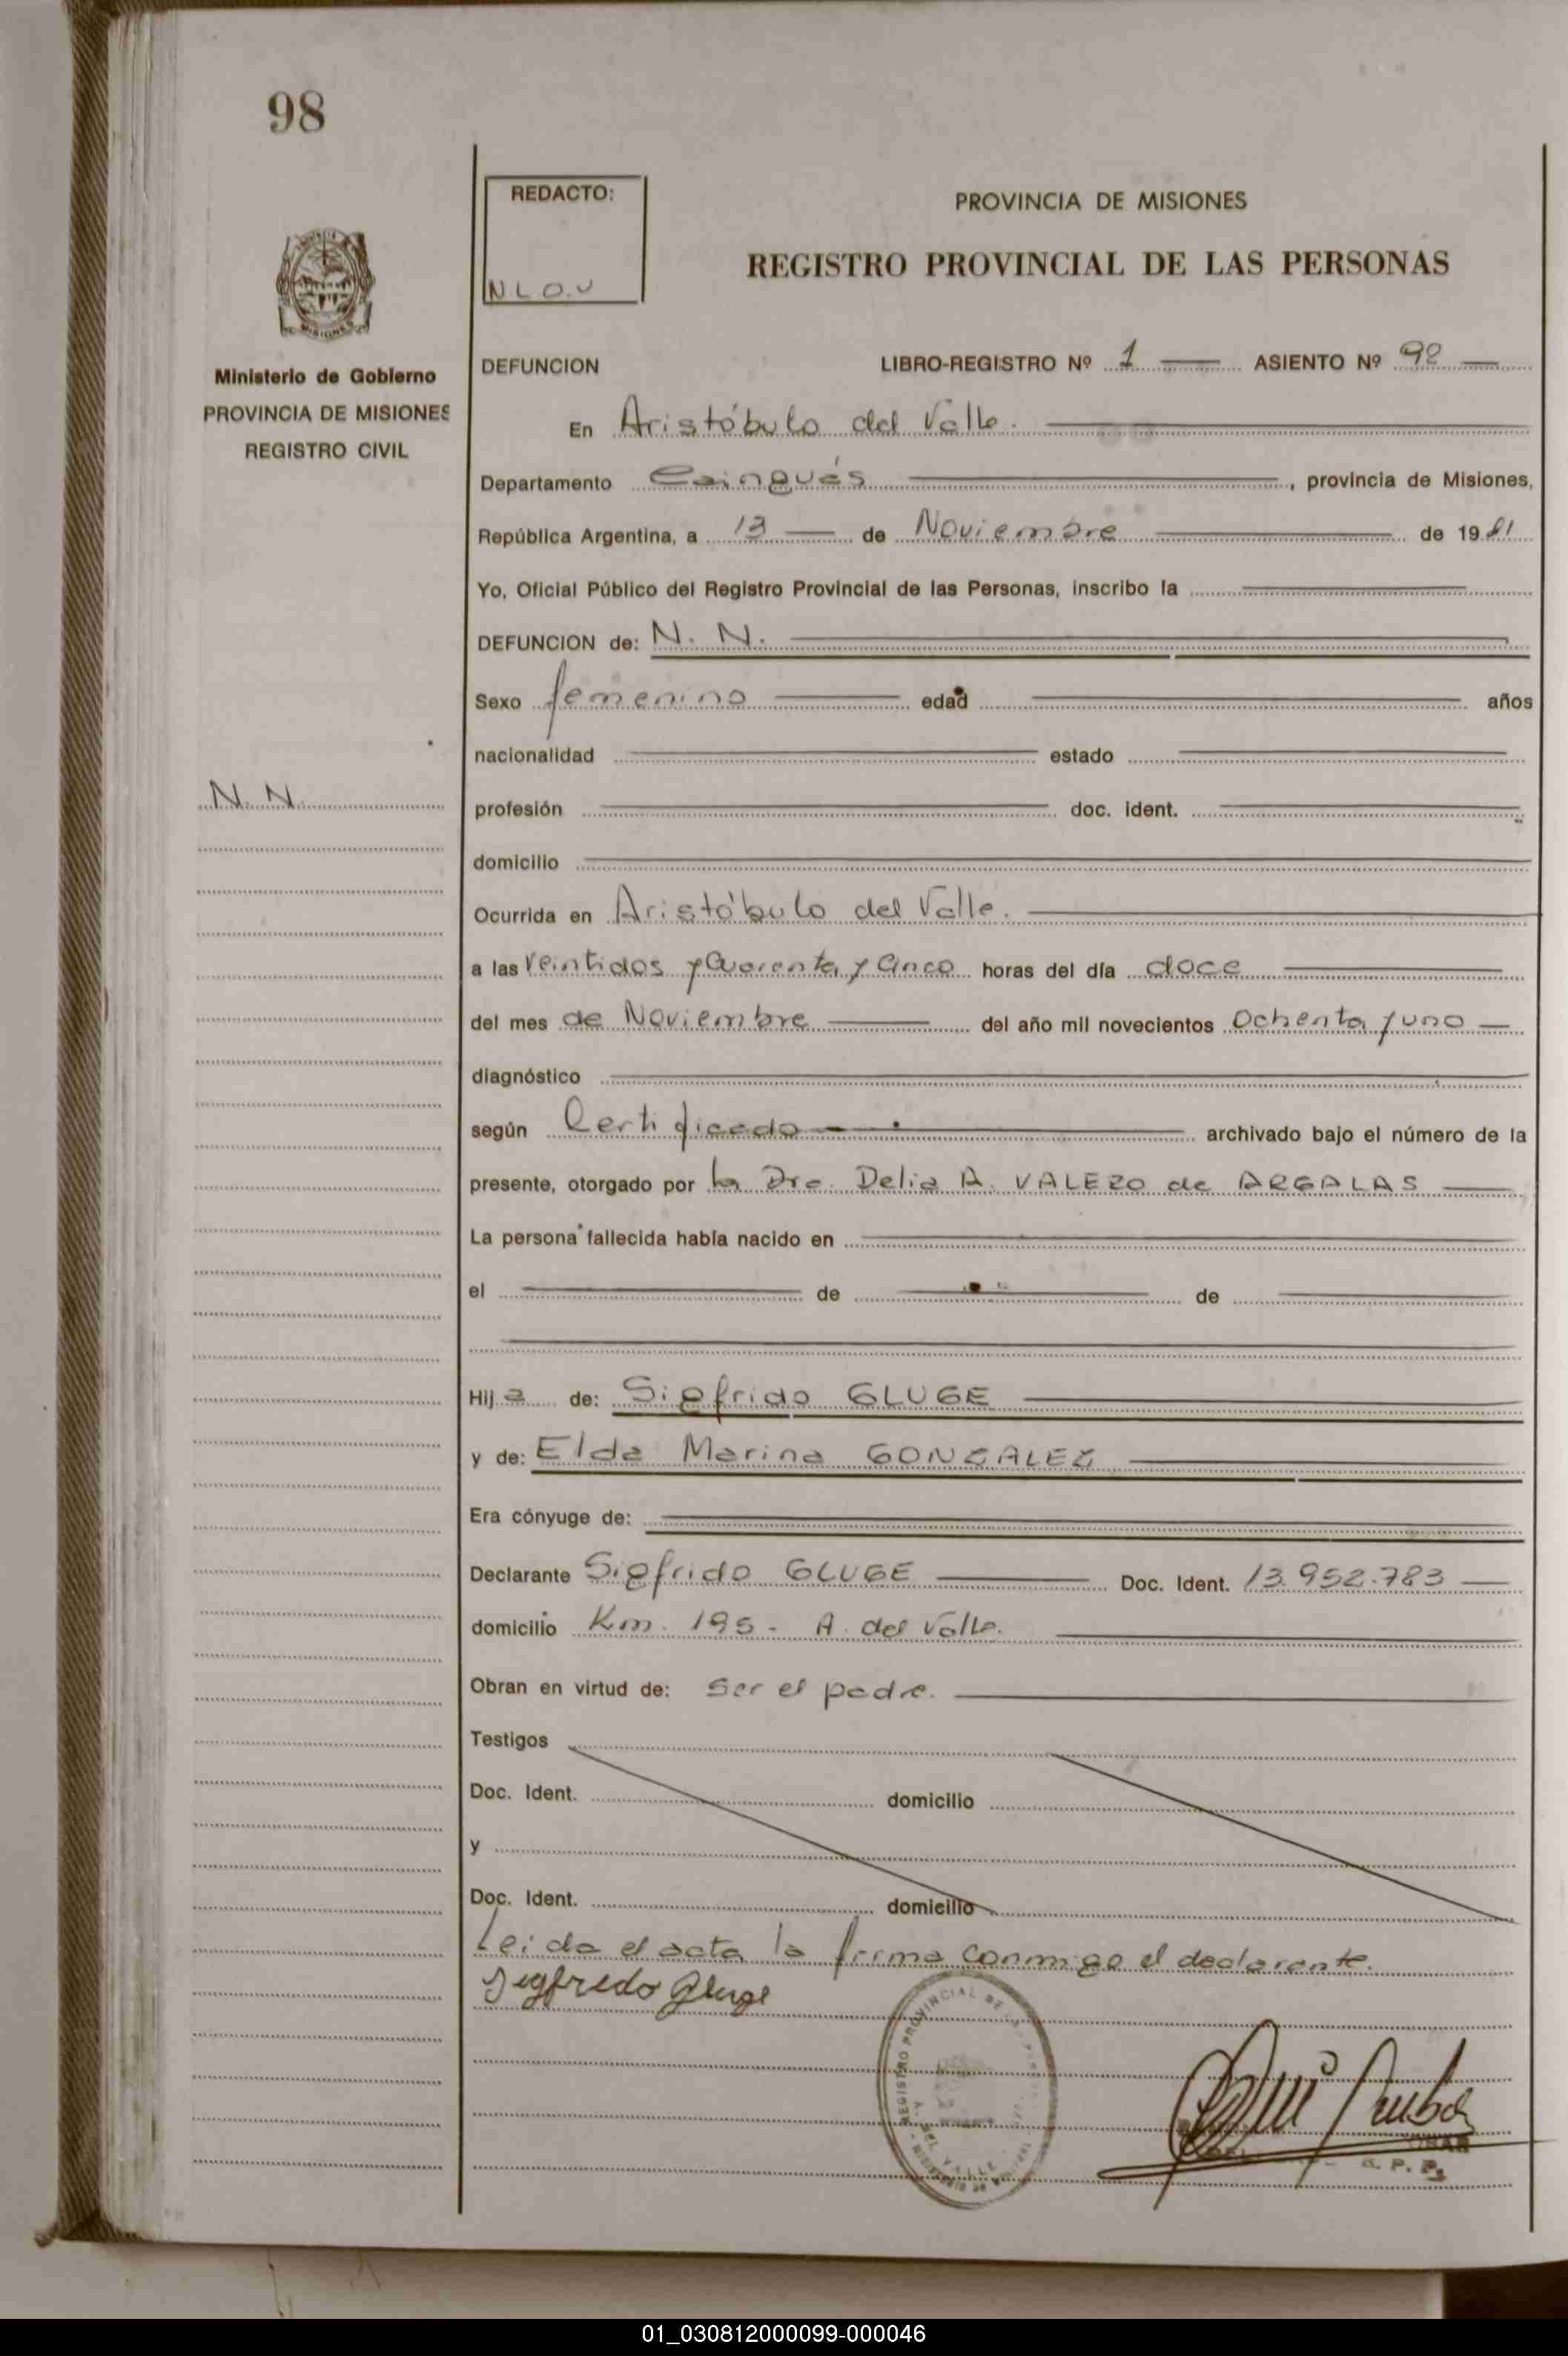 98
REDACTO:
N.L.O.V
PROVINCIA DE MISIONES
REGISTRO PROVINCIAL DE LAS PERSONAS
Ministerio de Gobierno
PROVINCIA DE MISIONES
REGISTRO CIVIL
DEFUNCION LIBRO-REGISTRO Nº 1 ASIENTO Nº 98
En Aristóbulo del Valle.
Departamento Cainguás, provincia de Misiones,
República Argentina, a 13 de Noviembre de 1981
Yo, Oficial Público del Registro Provincial de las Personas, inscribo la
DEFUNCION de: N. N.
Sexo femenino edad años
nacionalidad estado
N. N.
profesión doc. ident.
domicilio
Ocurrida en Aristóbulo del Valle.
a las veintidos y Cuarenta y Cinco horas del día doce
del mes de Noviembre del año mil novecientos Ochenta y uno
diagnóstico
según Certificado archivado bajo el número de la
presente, otorgado por la Dra. Delia A. VALEZO de ARGALAS
La persona fallecida había nacido en
el de de
Hija de: Sigfrido GLUGE
y de: Elda Marina GONZALEZ
Era cónyuge de:
Declarante Sigfrido GLUGE Doc. Ident. 13.952.783
domicilio Km. 195 - A. del Valle.
Obran en virtud de: Ser el padre.
Testigos
Doc. Ident. domicilio
y
Doc. Ident. domicilio
Leida el acta la firma conmigo el declarante.
Sigfredo Gluge
REGISTRO PROVINCIAL DE
DEL VALLE
R. P. P.
01_030812000099-000046